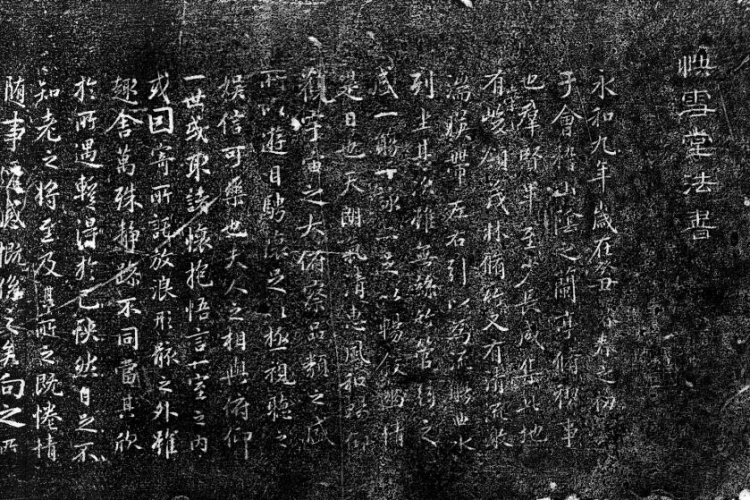 快雪堂法書
永和九年歲在癸丑暮春之初會
于會稽山陰之蘭亭脩稧事
也羣賢畢至少長咸集此地
有崇山峻領茂林脩竹又有清流激
湍暎帶左右引以為流觴曲水
列坐其次雖無絲竹管弦之
盛一觴一詠亦足以暢敘幽情
是日也天朗氣清惠風和暢仰
觀宇宙之大俯察品類之盛
所以遊目騁懷足以極視聽之
娛信可樂也夫人之相與俯仰
一世或取諸懷抱悟言一室之內
或因寄所託放浪形骸之外雖
趣舍萬殊靜躁不同當其欣
於所遇暫得於己怏然自足不
知老之將至及其所之既惓情
隨事遷感慨係之矣向之所